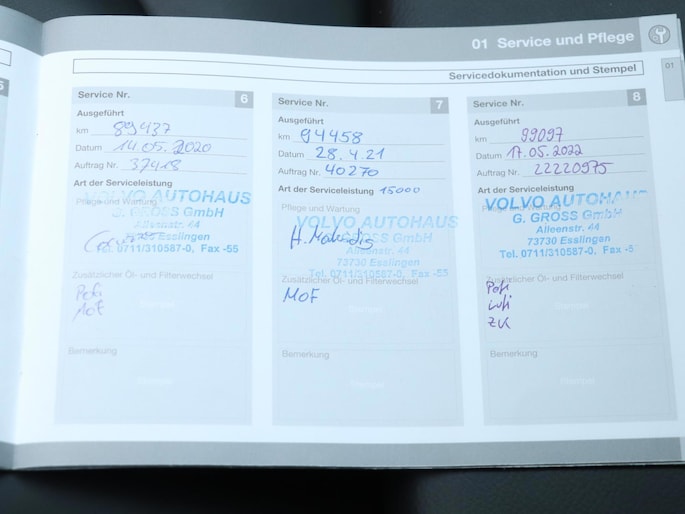 01 Service und Pflege
01
Servicedokumentation und Stempel
Service Nr. 6
Ausgeführt
km 89437
Datum 14.05.2020
Auftrag Nr. 37418
Art der Serviceleistung
Pflege und Wartung
VOLVO AUTOHAUS
G. GROSS GmbH
Alleenstr. 44
Tel. 0711/310587-0, Fax -55
Zusätzlicher Öl- und Filterwechsel
Pofi
MoF
Stempel
Bemerkung
Stempel
Service Nr. 7
Ausgeführt
km 94458
Datum 28.4.21
Auftrag Nr. 40270
Art der Serviceleistung 15000
Pflege und Wartung
VOLVO AUTOHAUS
GROSS GmbH
Alleenstr. 44
73730 Esslingen
Tel. 0711/310587-0, Fax -55
Zusätzlicher Öl- und Filterwechsel
MOF
Stempel
Bemerkung
Stempel
Service Nr. 8
Ausgeführt
km 99097
Datum 17.05.2022
Auftrag Nr. 22220975
Art der Serviceleistung
Pflege und Wartung
VOLVO AUTOHAUS
G. GROSS GmbH
Alleenstr. 44
73730 Esslingen
Tel. 0711/310587-0, Fax -5
Zusätzlicher Öl- und Filterwechsel
Pofi
Lufi
ZK
Stempel
Bemerkung
Stempel